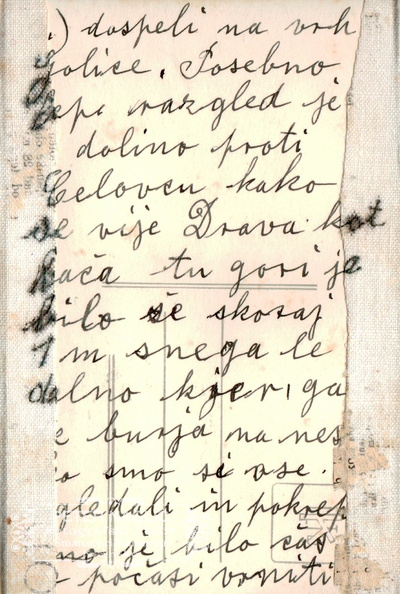 ) dospeli na vrh
Golice. Posebno
lep razgled je
dolino proti
Celovcu kako
se vije Drava kot
kača tu gori je
bilo še skozaj
1 m snega le
dalno kjer ga
je burja na nes
smo si vse.
gledali in pokrep
mo je bilo čas
počasi vrniti